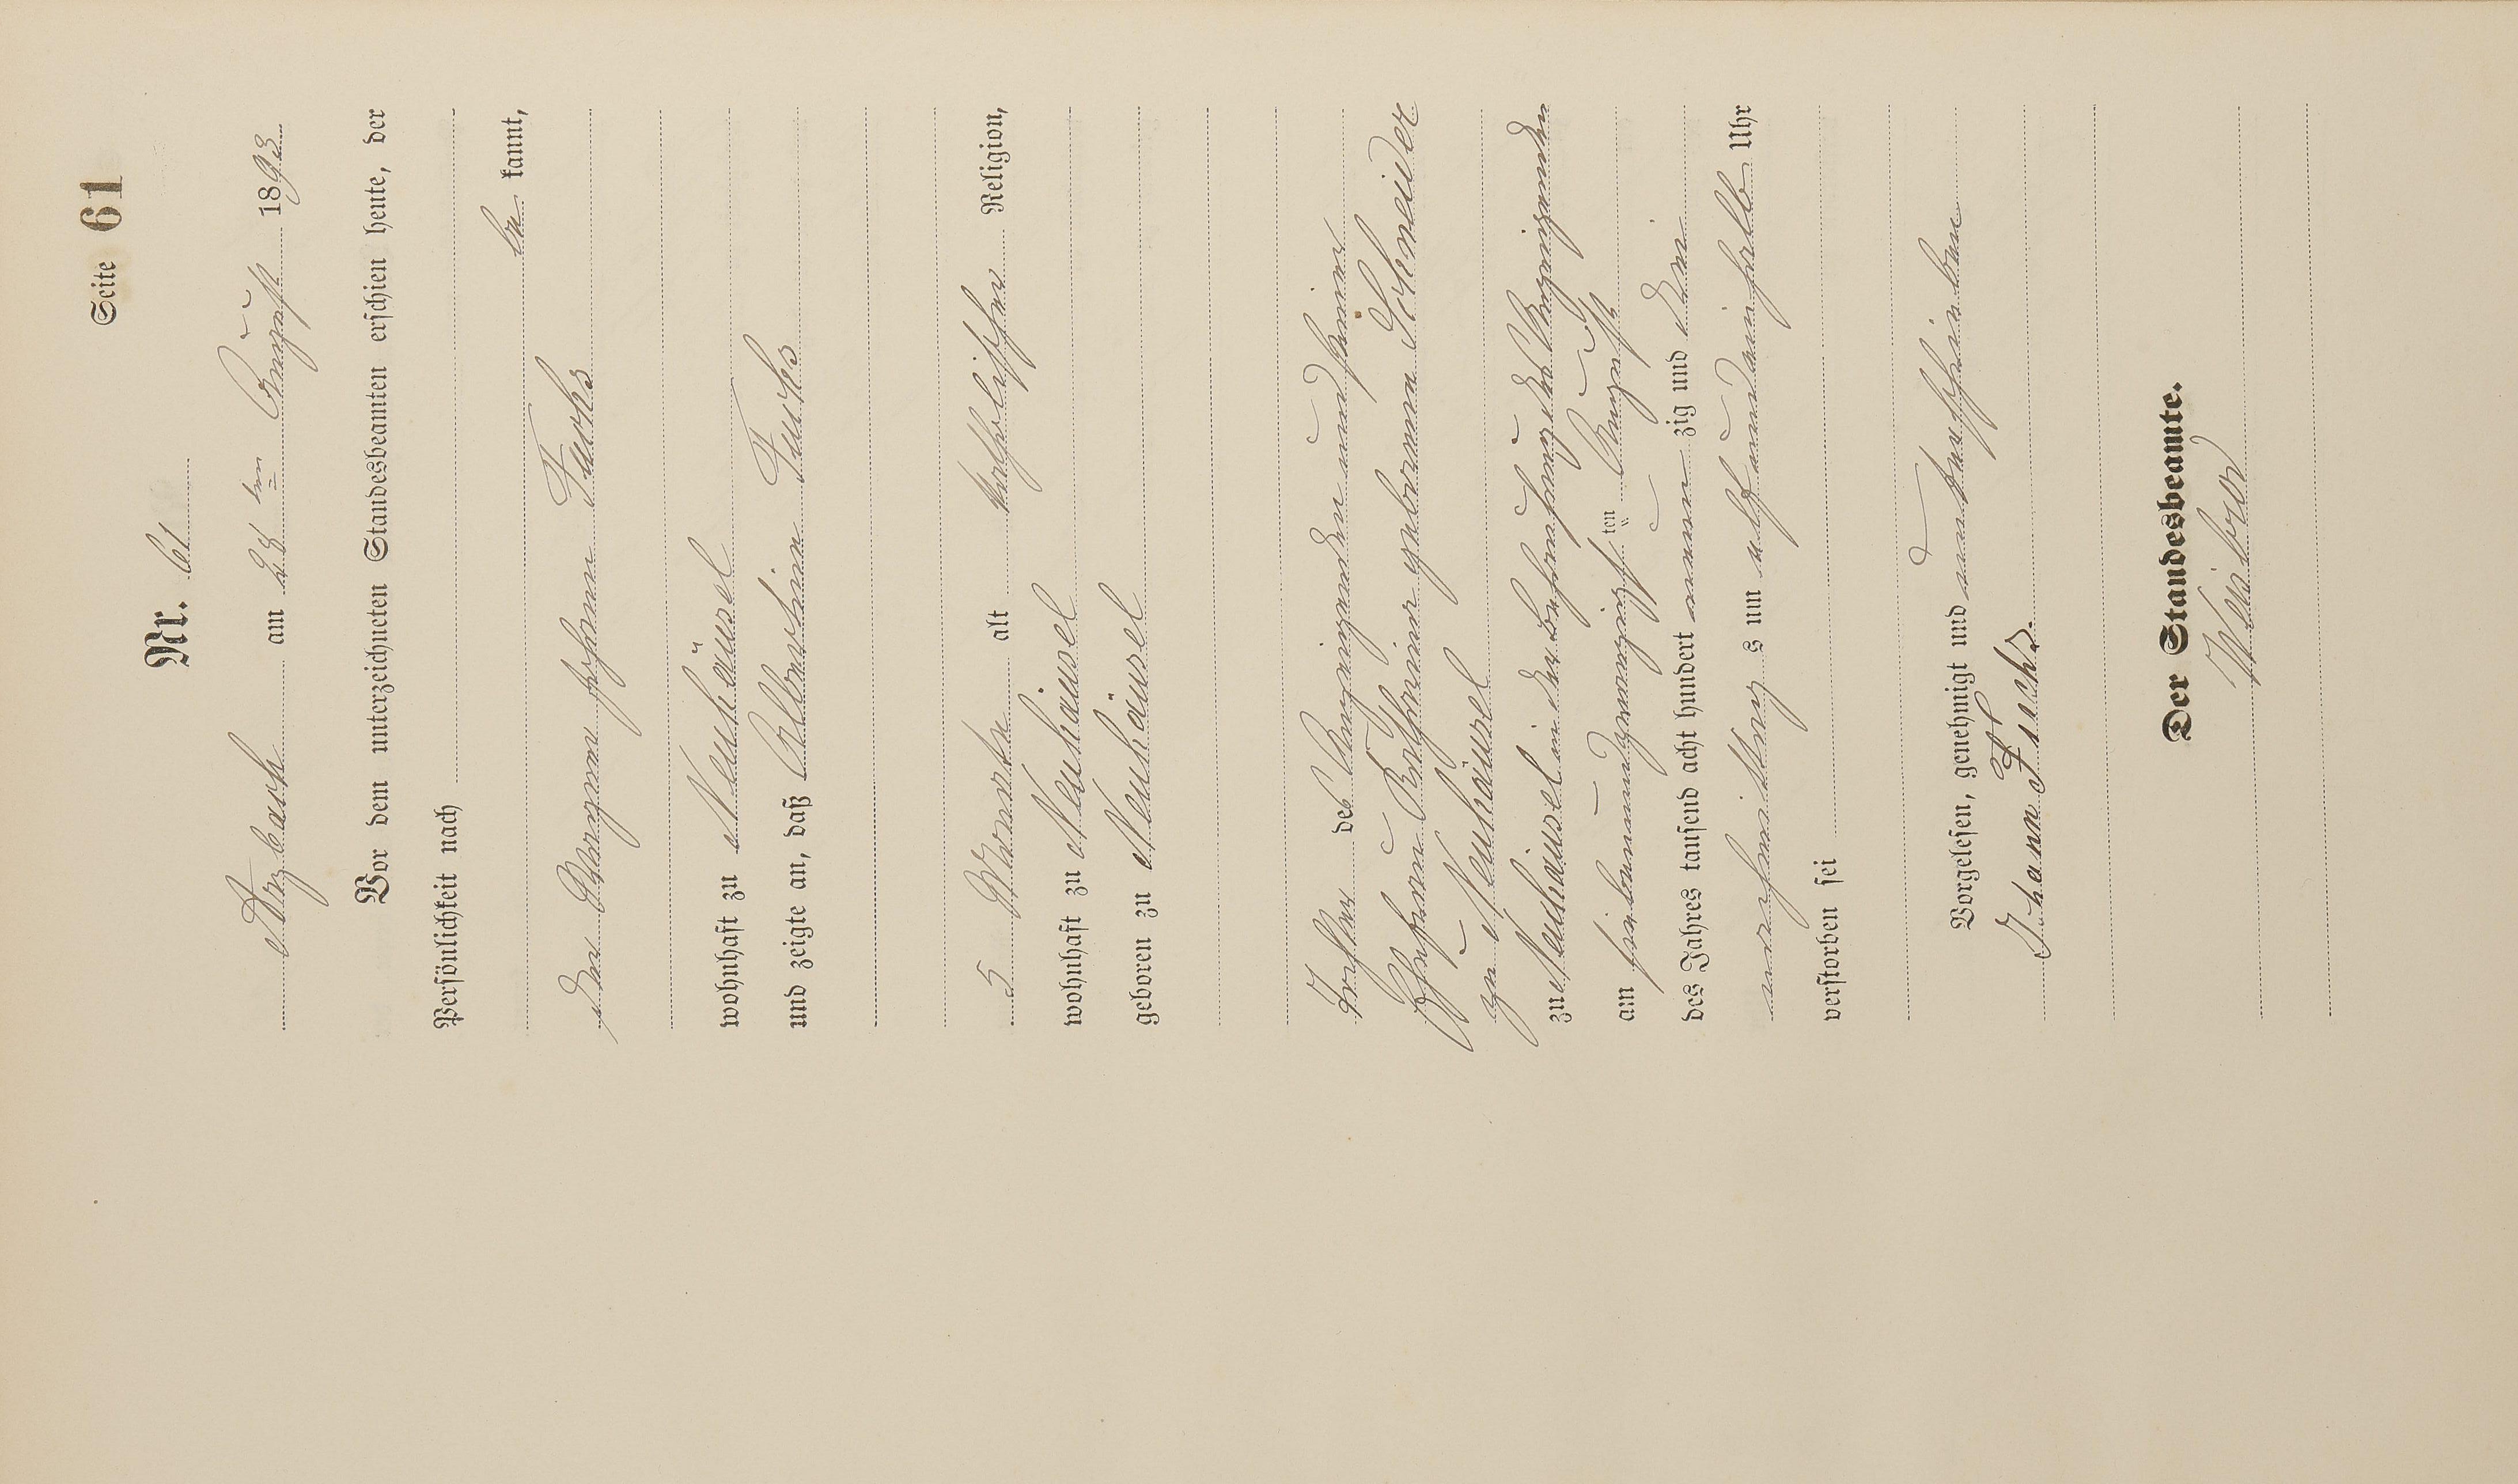 Seite 61
Nr. 61
Arzbach am 28ten August 1893
Vor dem unterzeichneten Standesbeamten erschien heute, der
Persönlichkeit nach
be kannt,
der Bergmann Johann Fuchs
wohnhaft zu Neuhäusel
und zeigte an, daß Albertine Fuchs
5 Monate alt katholischer Religion,
wohnhaft zu Neuhäusel
geboren zu Neuhäusel
Tochter des Anzeigenden und seiner
Ehefrau Katharina geborenen Schneider
zu Neuhäusel
zu Neuhäusel in der Behausung des Anzeigenden
am siebenundzwanzigsten August
des Jahres tausend acht hundert neun zig und drei
vormittags um elf und ein halb Uhr
verstorben sei
Vorgelesen, genehmigt und unterschrieben
Johann Fuchs.
Der Standesbeamte.
Weisbrod